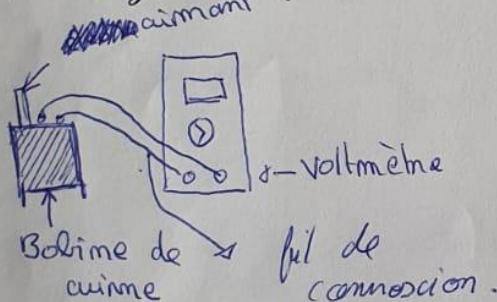 aimant
voltmètre
Bobine de
cuivre
fil de
connexcion.